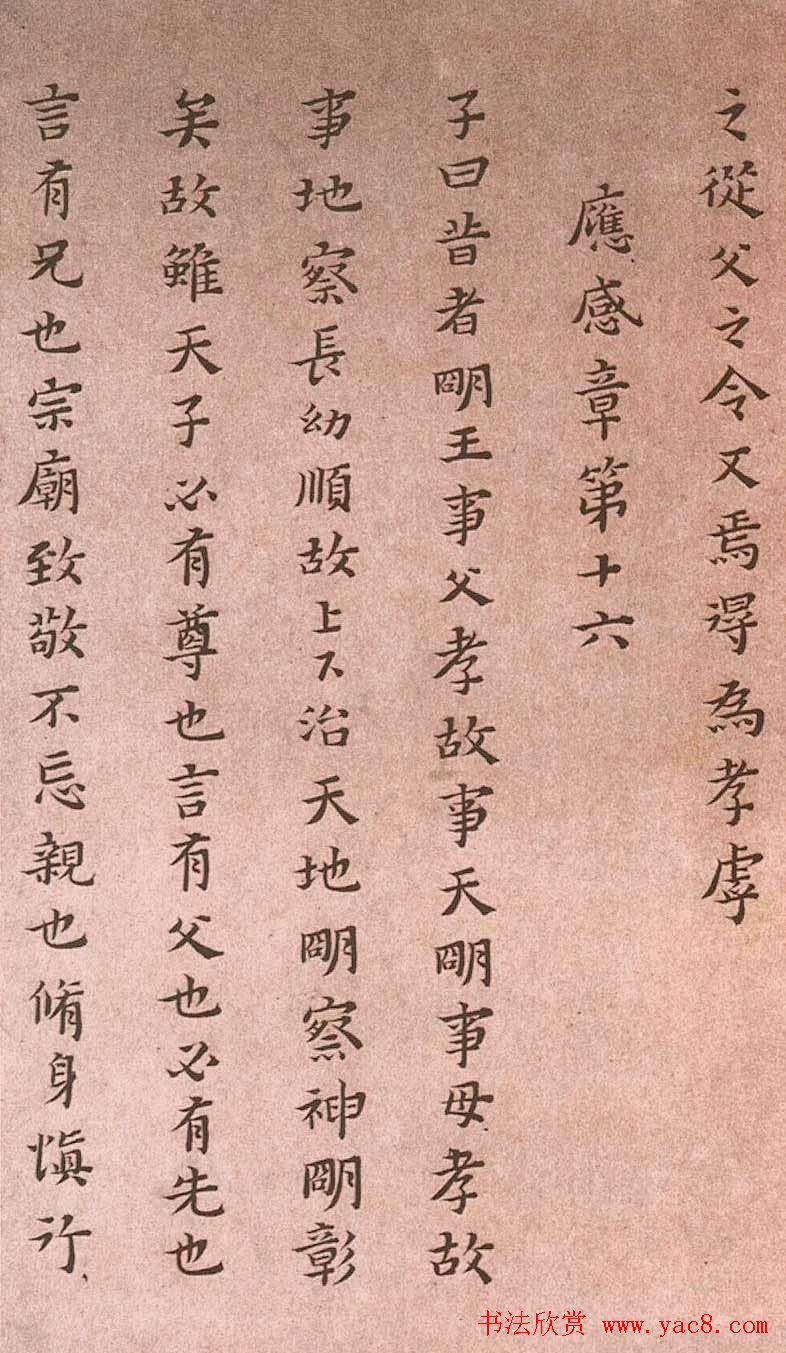 之從父之令又焉得為孝虖
應感章第十六
子曰昔者明王事父孝故事天明事母孝故
事地察長幼順故上下治天地明察神明彰
矣故雖天子必有尊也言有父也必有先也
言有兄也宗廟致敬不忘親也脩身慎行
书法欣赏 www.yac8.com